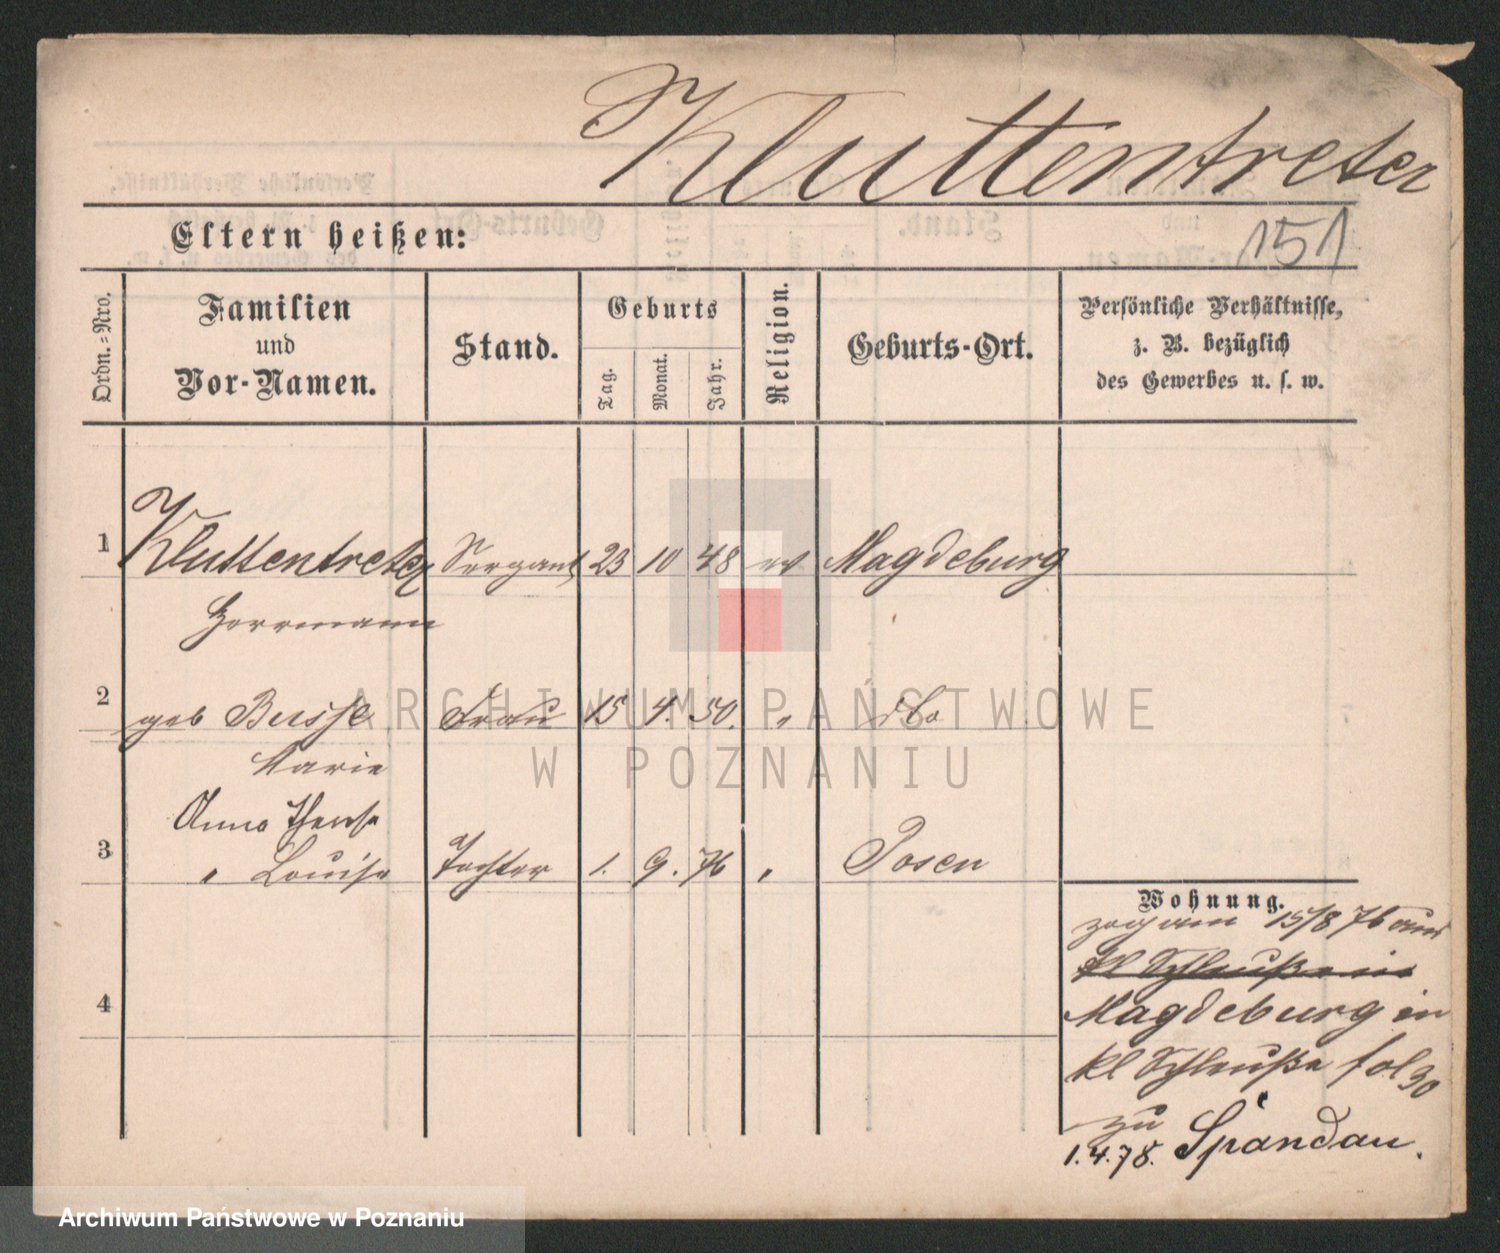 Kluttentreter
151
Eltern heißen:
Ordn.=Nro.
Familien
und
Vor-Namen.
Stand.
Geburts
Tag.
Monat.
Jahr.
Religion.
Geburts-Ort.
Persönliche Verhältnisse,
z. B. bezüglich
des Gewerbes u. s. w.
1 Kluttentreter Sergant 23 10 48 ev Magdeburg
Herrmann
2 geb Busse Frau 15 4. 50. " dto
Marie
Anna
3 " Louise Tochter 1. 9. 76 " Posen
Wohnung.
zog am 15/8 76 aus
kl Schleuße in
4
Magdeburg in
kl Schleuße fol 30
zu
1.4.78. Spandau.
ARCHIWUM PAŃSTWOWE
W POZNANIU
Archiwum Państwowe w Poznaniu